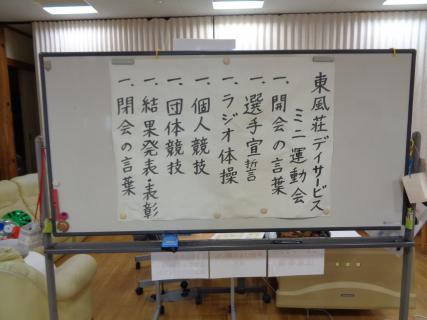 東風荘デイサービス
ミニ運動会
一.開会の言葉
一.選手宣誓
一.ラジオ体操
一.個人競技
一.団体競技
一.結果発表・表彰
一.閉会の言葉